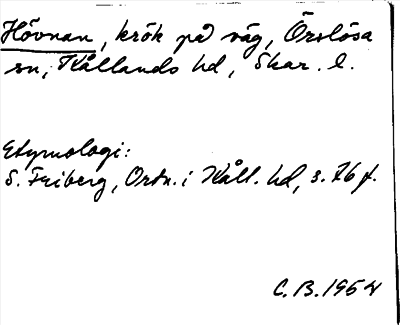 Hövnan, krök på väg, Örslösa
sn, Kållands hd, Skar. l.
Etymologi:
S. Friberg, Ortn. i Kåll. hd, s. 76 f.
C. B. 1954